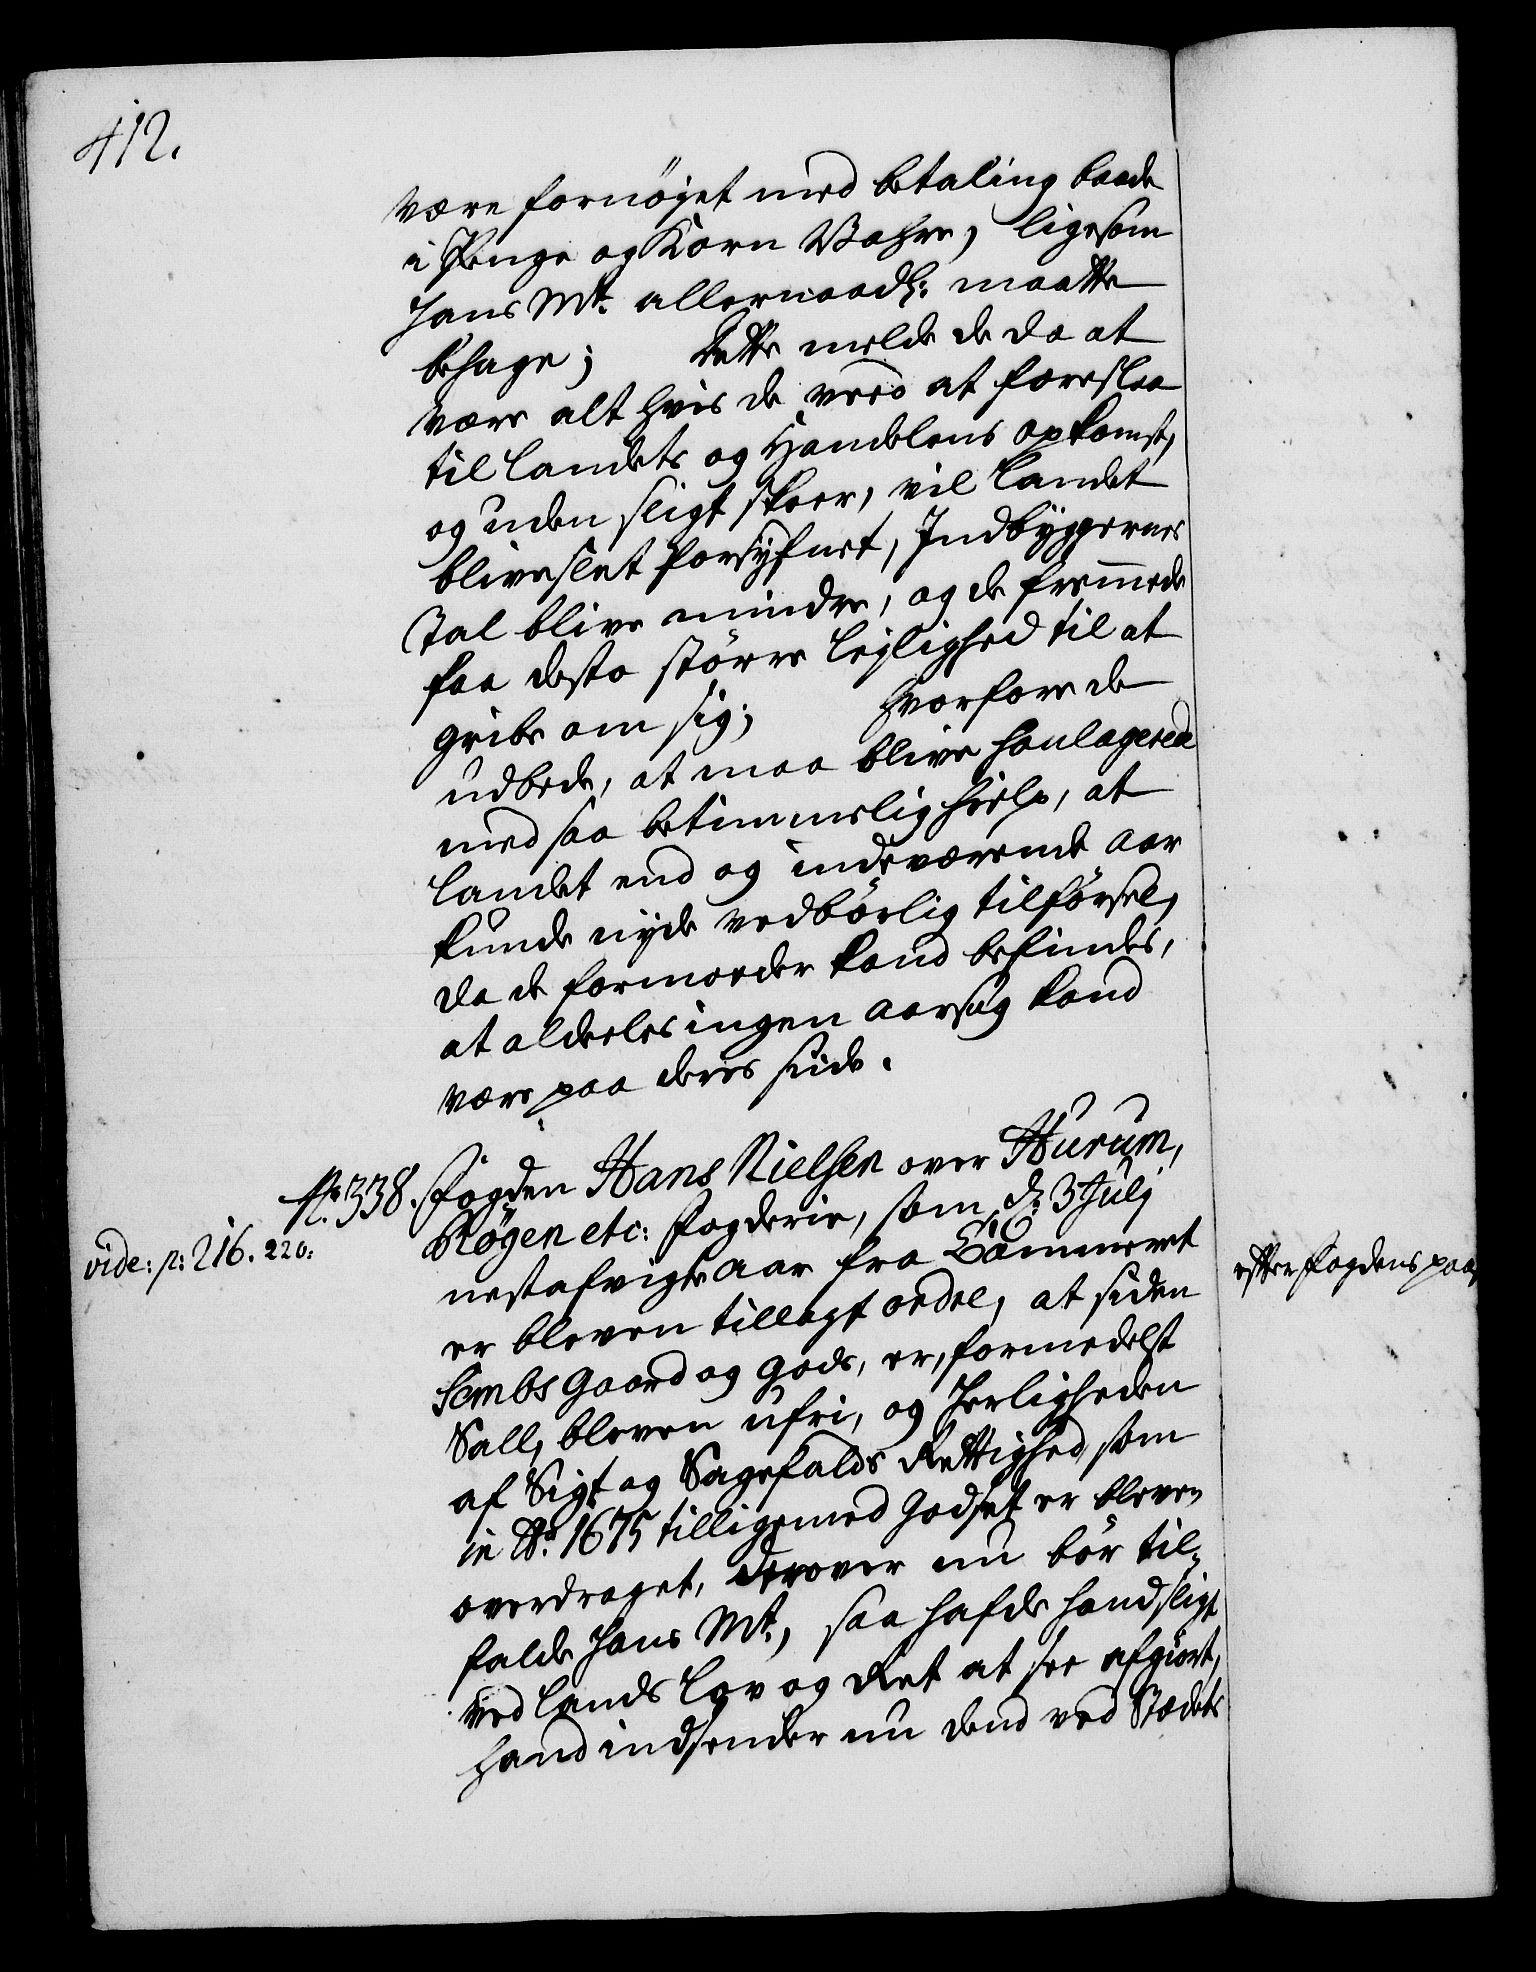 412.
være fornöÿet med betaling baade
i Penge og Korn Vahre, ligesom
Hans Mt. allernaadl: maatte
behage; Dette melde de da at
være alt hvis de veed at foreslaa
til Landets og Handelens opkomst,
og uden sligt skeer, vil Landet
blive slet forsÿfnet, Indbÿggernes
Tal blive mindre, og de fremmede
faa desto större lejlighed til at
gribe om sig; Hvorfore de
udbede, at maa blive
med saa betimmelig hielp, at
Landet end og indeværende aar
kunde nÿde vedbörlig tilförsel,
da de formoeder kand befindes,
at aldeeles ingen aarsag kand
være paa deres siide.
No. 338. Fogden Hans Nielsen over Hurum,
Rögen etc: Fogderie, som d: 3 Julj
vide: p: 216. 220:
nestafvigte aar fra Cammeret
er bleven tillagt ordre, at siden
Sembs Gaard og Gods, er, formedelst
Sall, bleven ufri, og Herligheden
af Sigt og Sagefalds Rettighed som
in Ao. 1675 tilligemed Godset er bleven
overdraget, derover nu bör til-
falde Hans Mt., saa hafde hand sligt
ved Lands Lov og Ret at see afgiort,
hand indsender nu dend ved Stædets
efter Fogdens paa